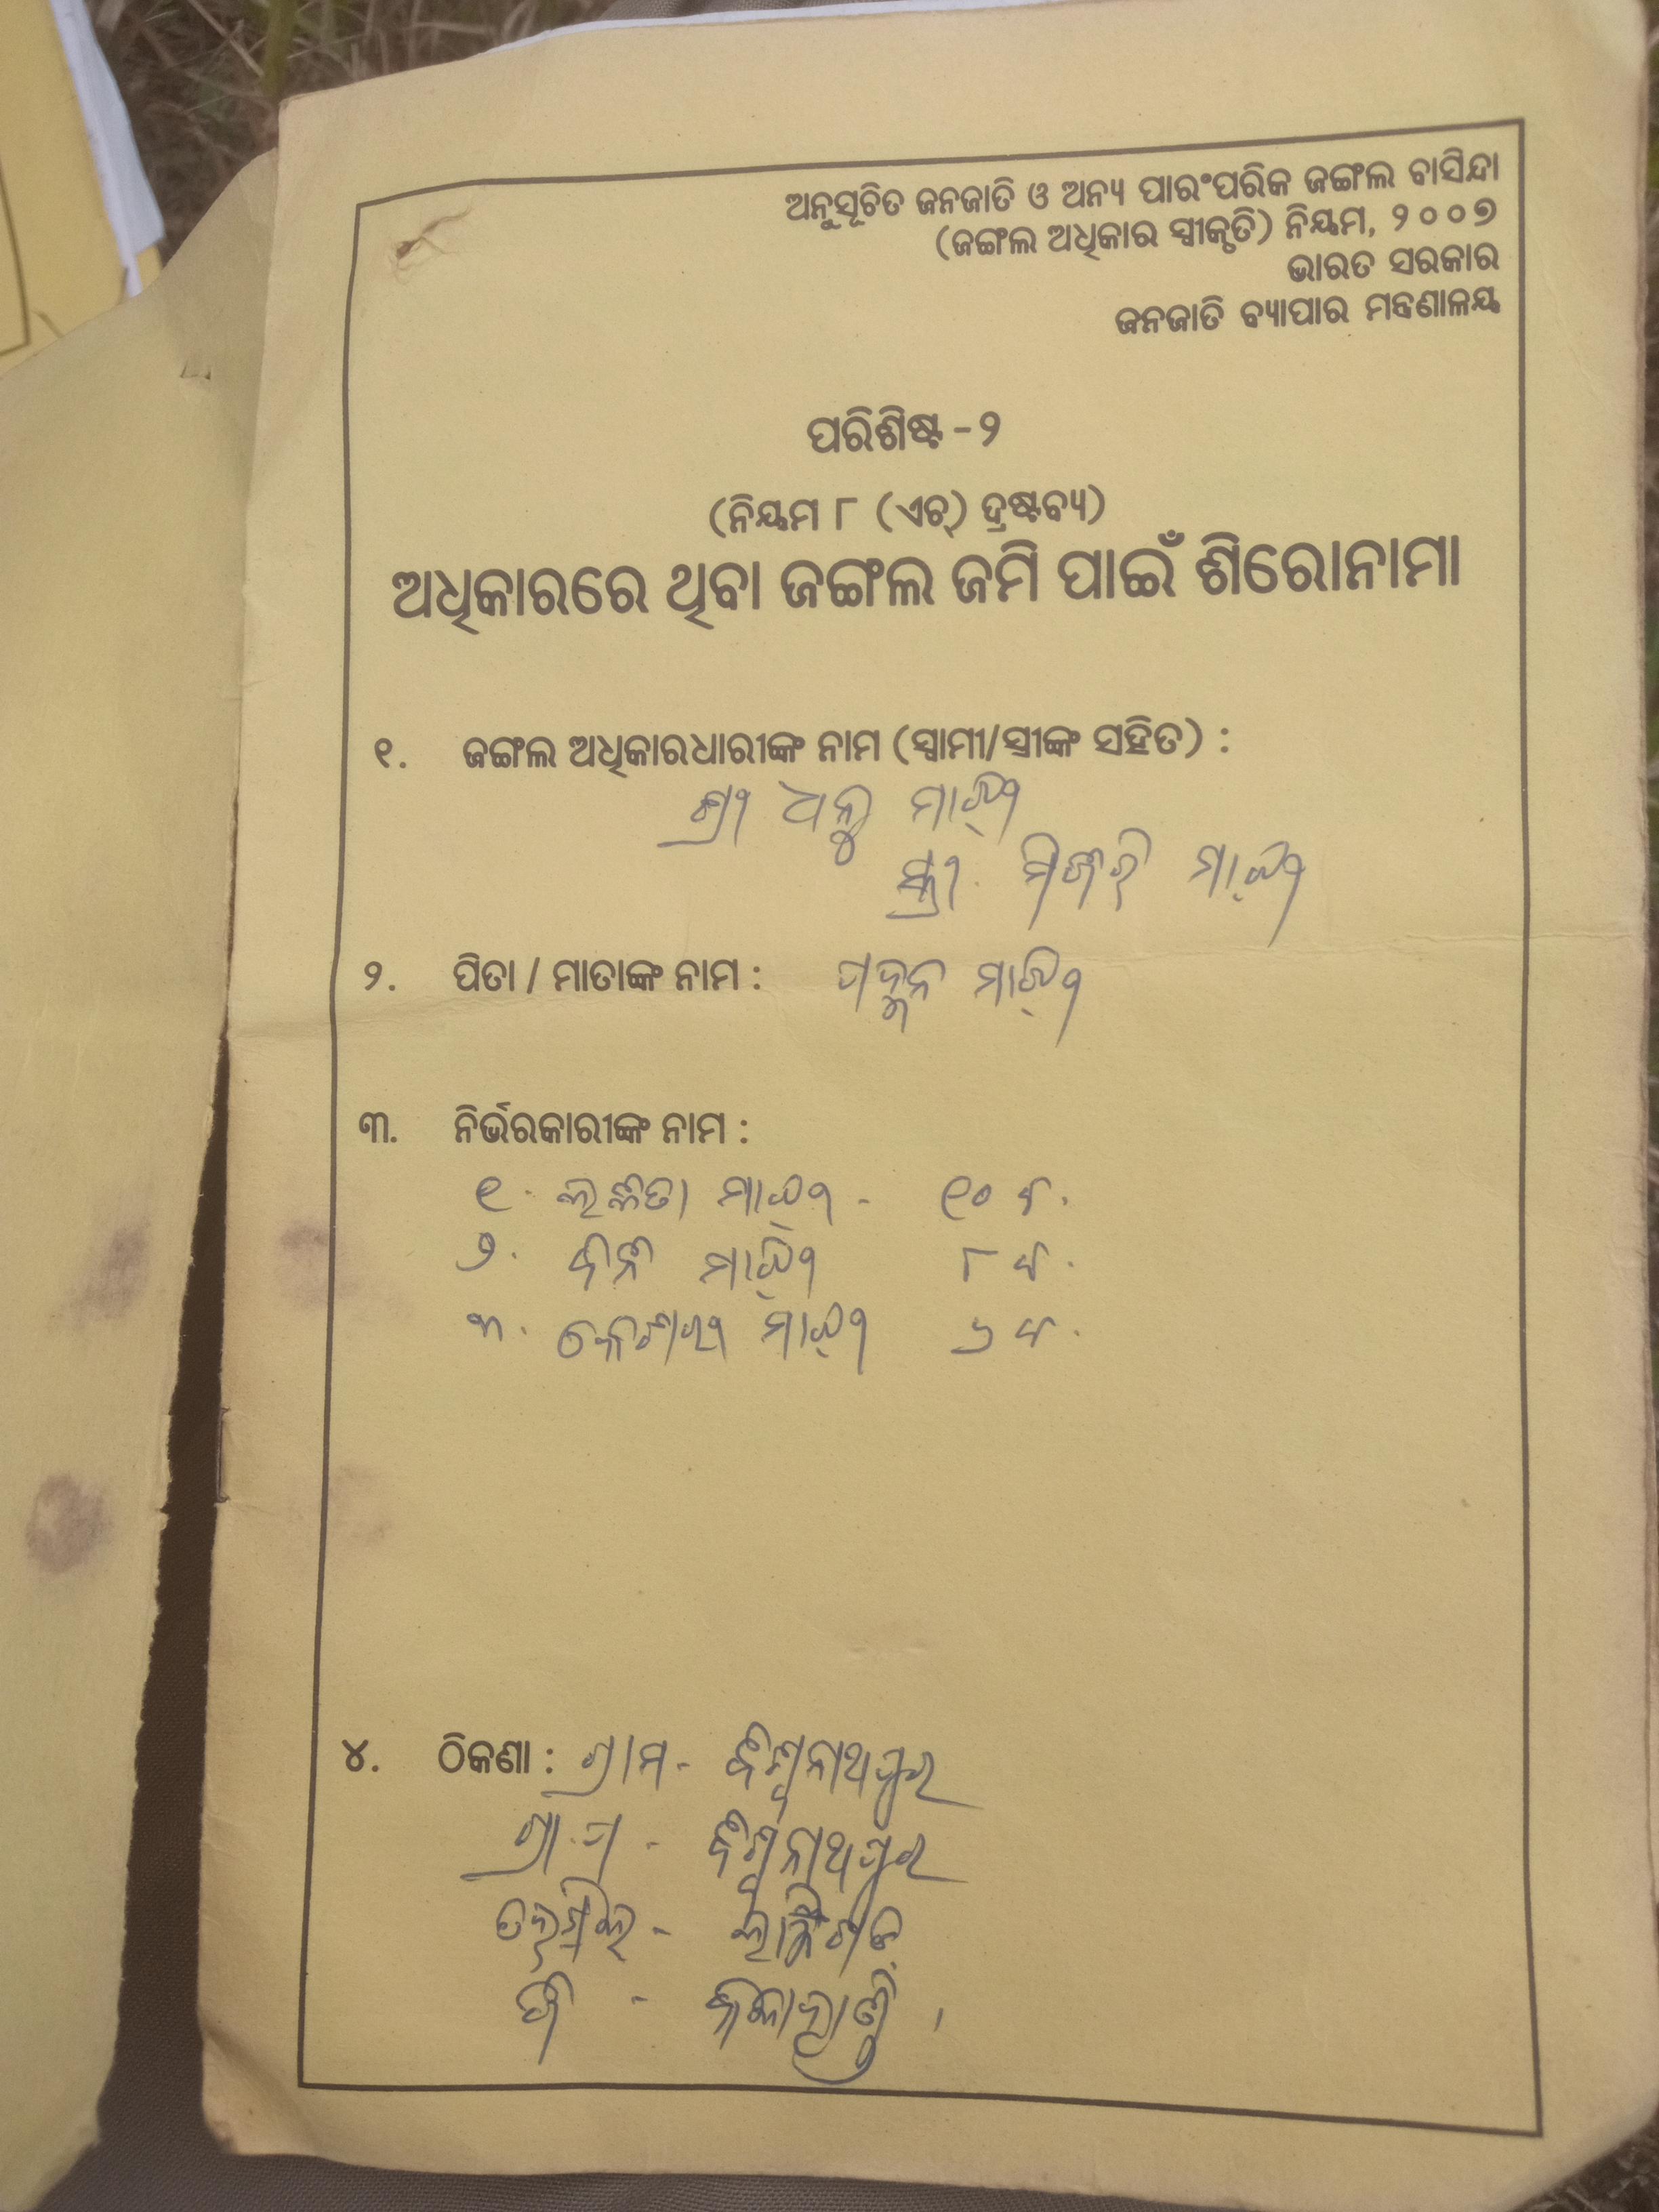 ଅନୁସୂଚିତ ଜନଜାତି ଓ ଅନ୍ୟ ପାରଂପରିକ ଜଙ୍ଗଲ ବାସିନ୍ଦା
(ଜଙ୍ଗଲ ଅଧିକାର ସ୍ୱୀକୃତି) ନିୟମ, ୨୦୦୭
ଭାରତ ସରକାର
ଜନଜାତି ବ୍ୟାପାର ମନ୍ତ୍ରଣାଳୟ
ପରିଶିଷ୍ଟ -୨
(ନିୟମ ୮ (ଏଚ୍) ଦ୍ରଷ୍ଟବ୍ୟ)
ଅଧିକାରରେ ଥିବା ଜଙ୍ଗଲ ଜମି ପାଇଁ ଶିରୋନାମା
୧. ଜଙ୍ଗଲ ଅଧିକାରଧାରୀଙ୍କ ନାମ (ସ୍ୱାମୀ/ସ୍ତ୍ରୀଙ୍କ ସହିତ) :
ଶ୍ରୀ ଧନୁ ମାଝୀ
ସ୍ତ୍ରୀ ମାଝୀ
୨. ପିତା / ମାତାଙ୍କ ନାମ : ମାଝୀ
୩. ନିର୍ଭରକାରୀଙ୍କ ନାମ :
୧. ଲଳିତା ମାଝୀ - ୧୦ ବ.
୨. ମାଝୀ ୮ ବ.
୩. ମାଝୀ ୬ ବ.
୪. ଠିକଣା : ଗ୍ରାମ - ବିଶ୍ୱନାଥପୁର
ଗ୍ରା.ପ - ବିଶ୍ୱନାଥପୁର
ତହସିଲ - ଲାଞ୍ଜିଗଡ଼
ଜି - କଳାହାଣ୍ଡି ।